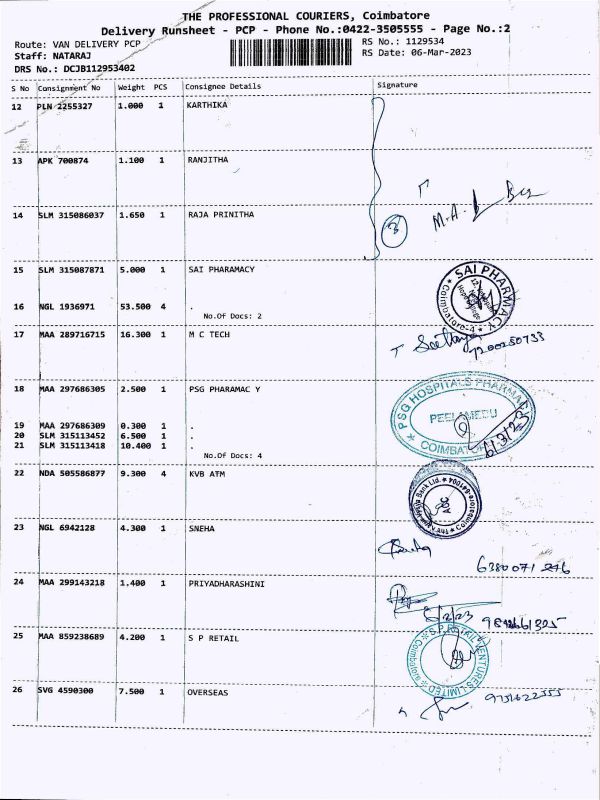 THE PROFESSIONAL COURIERS, Coimbatore
Delivery Runsheet - PCP - Phone No.:0422-3505555 - Page No.:2
Route: VAN DELIVERY PCP
RS No.: 1129534
Staff: NATARAJ
RS Date: 06-Mar-2023
DRS No.: DCJB112953402
S No Consignment No Weight PCS Consignee Details Signature
12 PLN 2255327 1.000 1 KARTHIKA
13 APK 700874 1.100 1 RANJITHA
14 SLM 315086037 1.650 1 RAJA PRINITHA
3
M.A.
15 SLM 315087871 5.000 1 SAI PHARAMACY
SAI PHARMACY
Coimbatore-4
16 NGL 1936971 53.500 4 .
No.Of Docs: 2
17 MAA 289716715 16.300 1 M C TECH
18 MAA 297686305 2.500 1 PSG PHARAMAC Y
PSG HOSPITALS PHARMAC
PEELAMEDU
COIMBATOR
19 MAA 297686309 0.300 1 .
20 SLM 315113452 6.500 1 .
21 SLM 315113418 10.400 1 .
No.Of Docs: 4
22 NDA 505586877 9.300 4 KVB ATM
Bank Ltd.
23 NGL 6942128 4.300 1 SNEHA
6380071246
24 MAA 299143218 1.400 1 PRIYADHARASHINI
25 MAA 859238689 4.200 1 S P RETAIL
S.P. RETAIL VENTURES LIMITED
Coimbatore
26 SVG 4590300 7.500 1 OVERSEAS